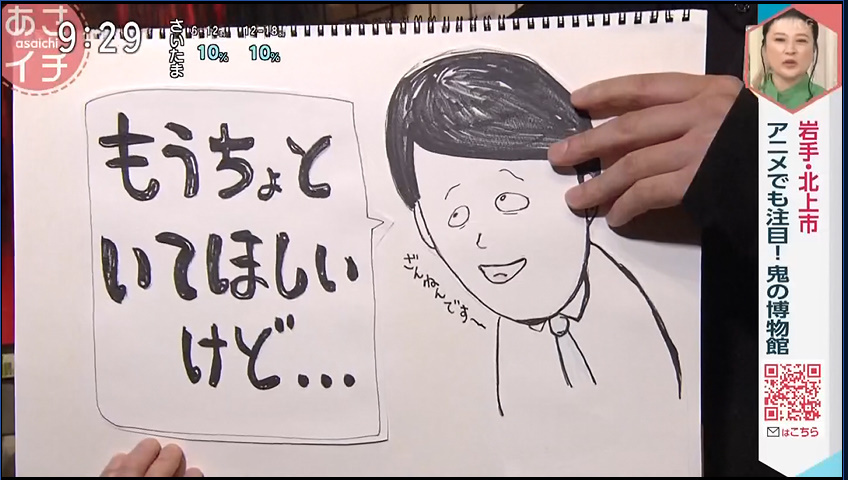 あさ
asaichi
イチ
9:29
さいたま
6-12
10%
12-18
10%
もうちょと
いてほしい
けど...
ざんねんです〜
岩手・北上市
アニメでも注目!鬼の博物館
はこちら